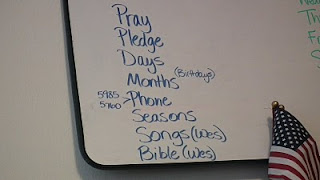 Pray
Pledge
Days
Months (Birthdays)
5985
5760 - Phone
Seasons
Songs (Wes)
Bible (Wes)